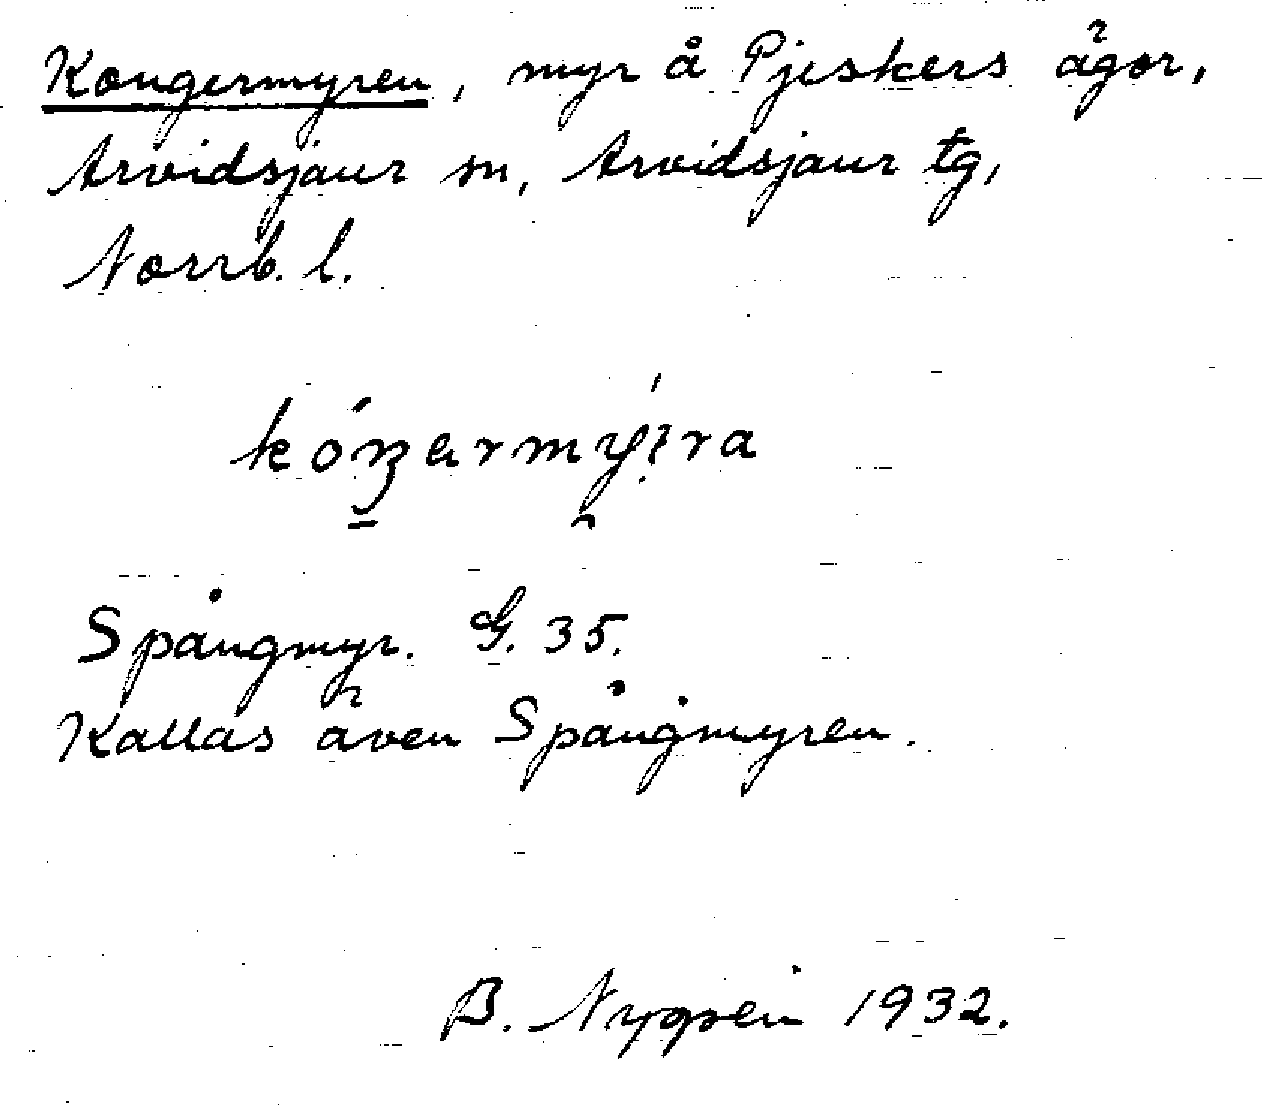 Kongermyren, myr å Pjeskers ägor,
Arvidsjaur sn, Arvidsjaur tg,
Norrb. l.
kóŋermy̆ra
Spångmyr. G. 35.
Kallas även Spångmyren.
B. Nygren 1932.